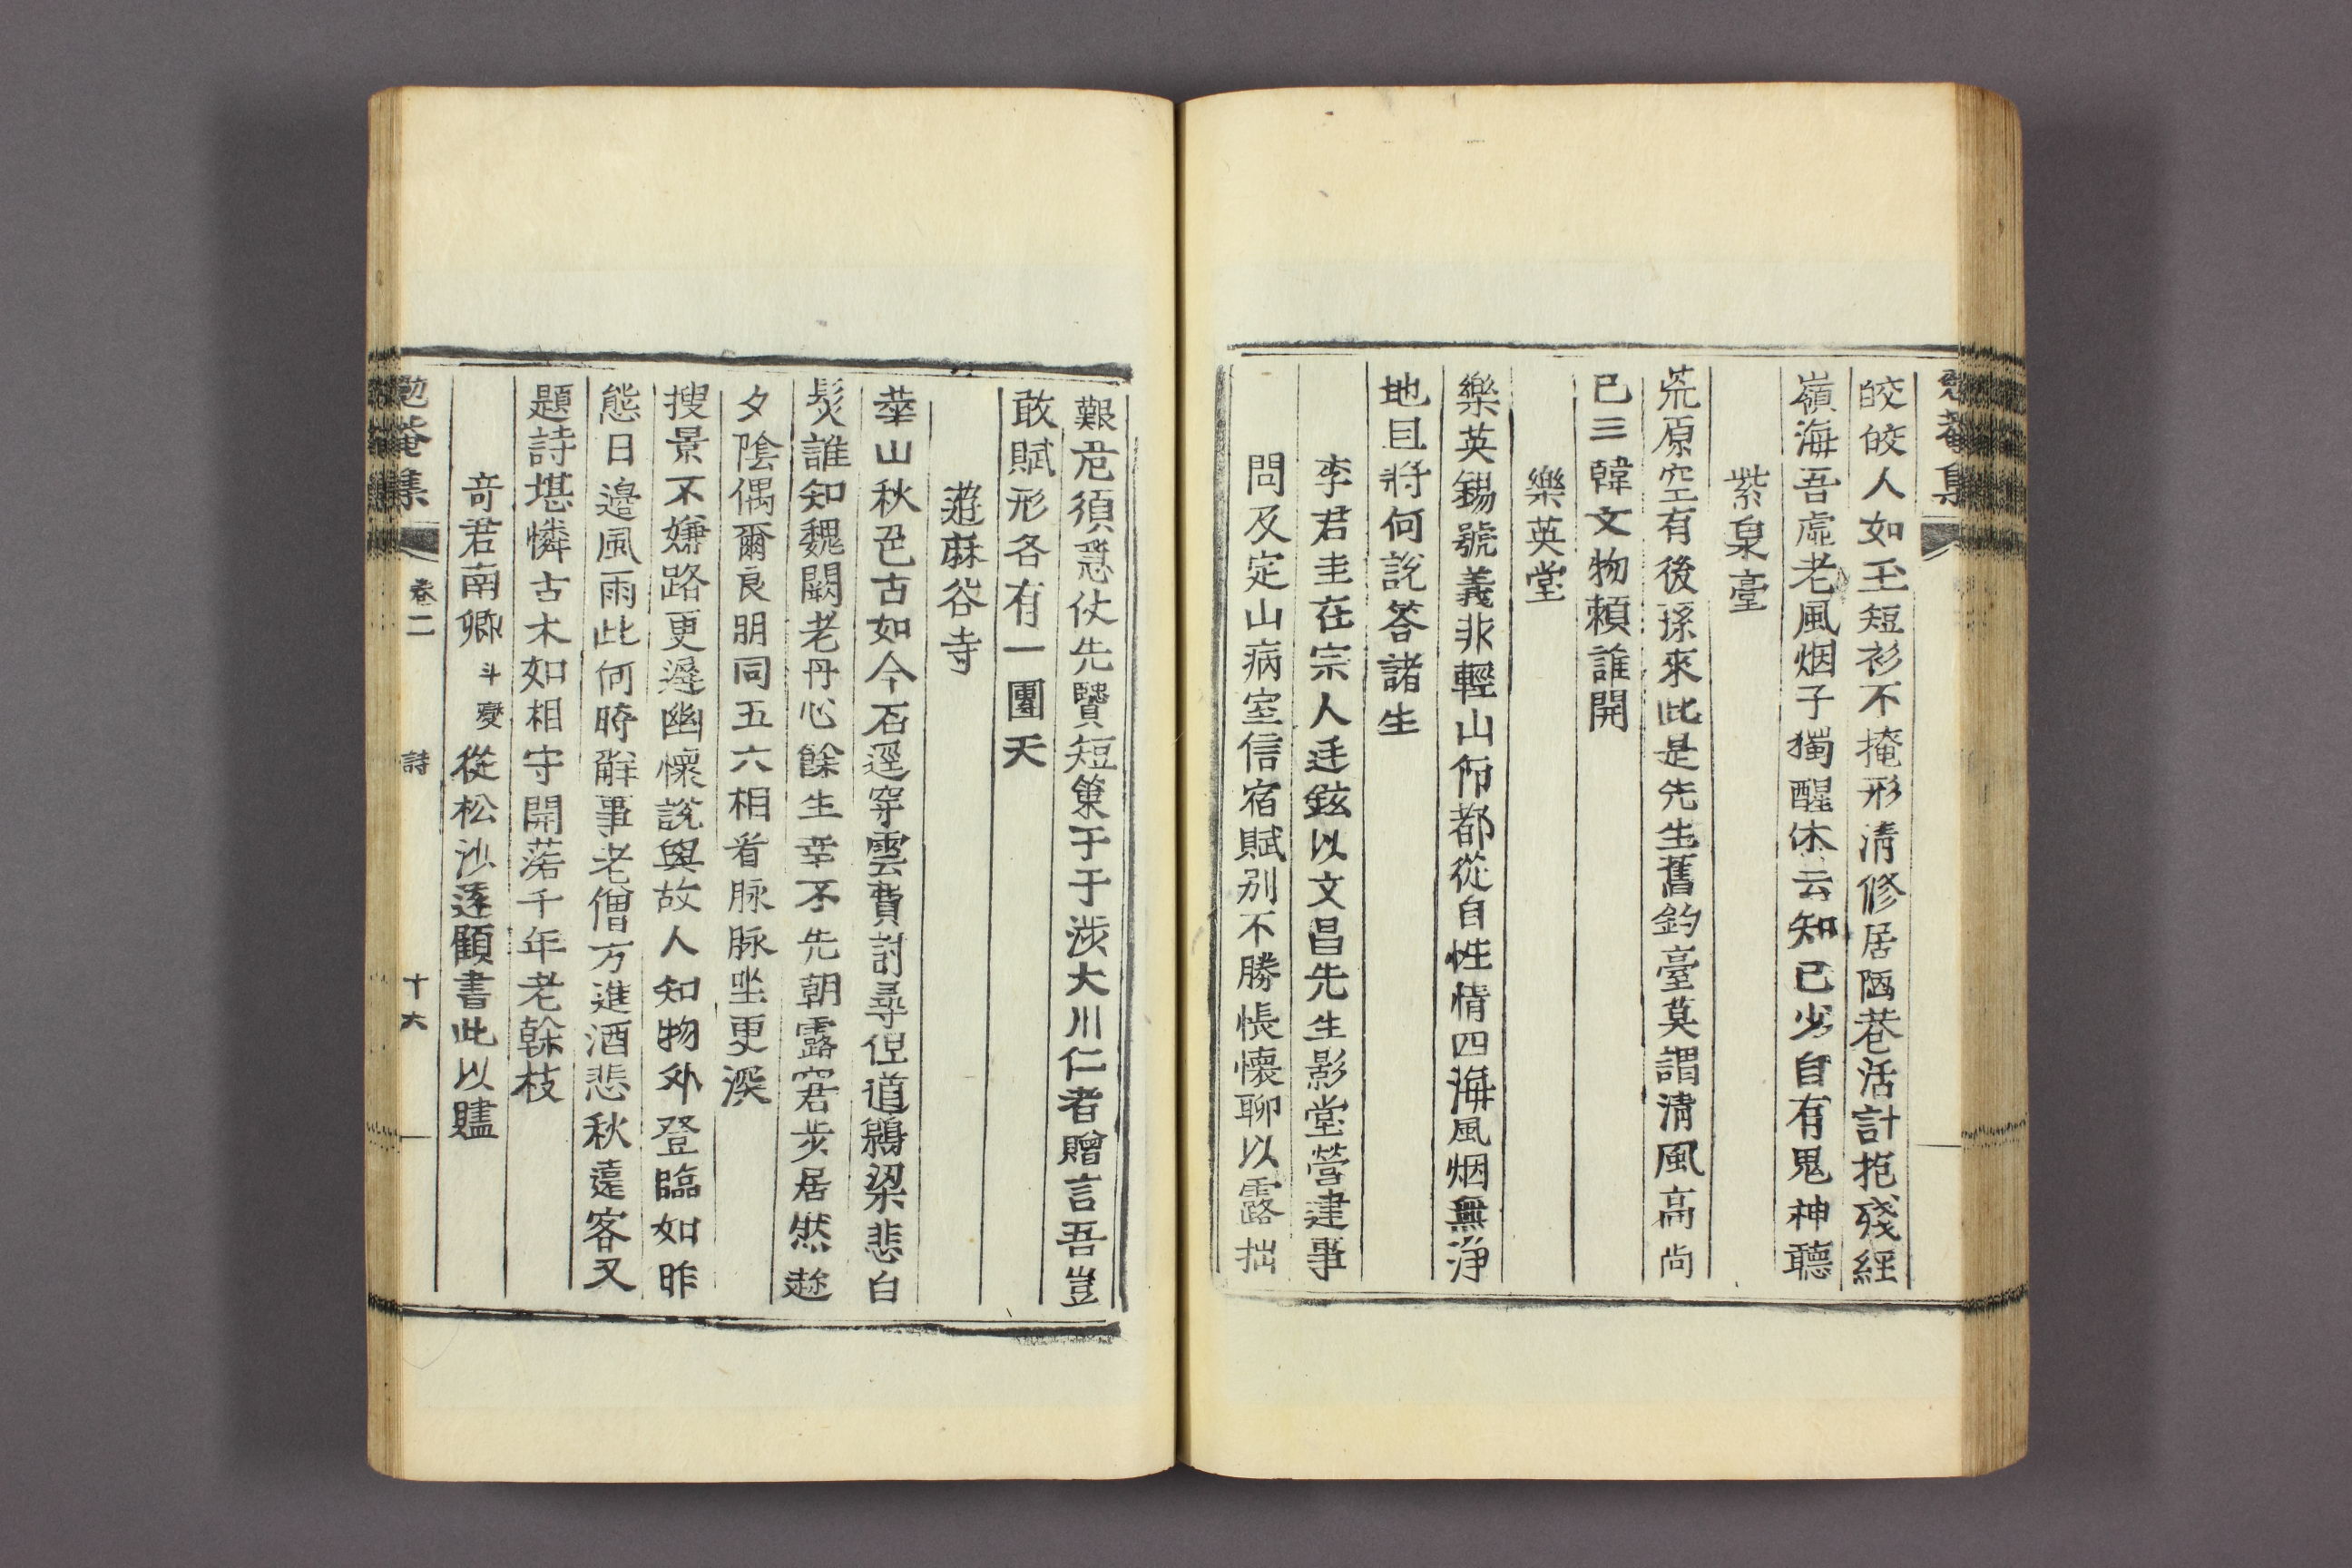 勉菴集
皎皎人如玉短衫不掩形淸修居陋巷活計抱殘經
嶺海吾虛老風烟子獨醒休云知已少自有鬼神聽
紫泉臺
荒原空有後孫來此是先生舊釣臺莫謂淸風高尙
已三韓文物賴誰開
樂英堂
樂英錫號義非輕山仰都從自性情四海風烟無淨
地且將何說答諸生
李君圭在宗人廷鉉以文昌先生影堂營建事
問及定山病室信宿賦別不勝悵懷聊以露拙
艱危須急仗先賢短策于于涉大川仁者贈言吾豈
敢賦形各有一團天
遊麻谷寺
華山秋色古如今石逕穿雲費討尋但道鵝梁悲白
髮誰知魏闕老丹心餘生幸不先朝露窘步居然趂
夕陰偶爾良朋同五六相看脉脉坐更深
搜景不嫌路更遲幽懷說與故人知物外登臨如昨
態日邊風雨此何時解事老僧方進酒悲秋遠客又
題詩堪憐古木如相守開落千年老榦枝
奇君南卿斗燮從松沙遂顧書此以贐
勉菴集 卷二 詩 十六